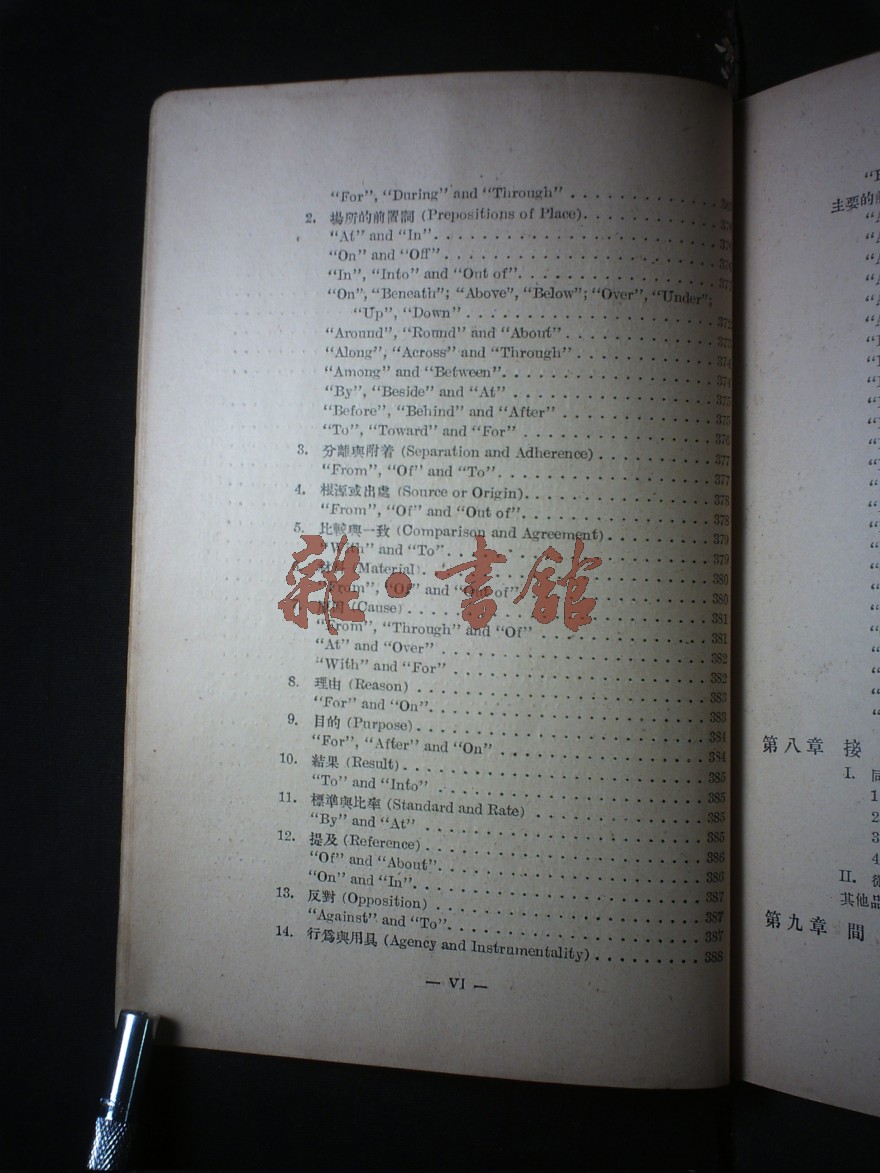 "For", "During" and "Through"
2. 場所的前置詞 (Prepositions of Place)
"At" and "In"
"On" and "Off"
"In", "Into" and "Out of"
"On", "Beneath"; "Above", "Below"; "Over", "Under";
"Up", "Down" 372
"Around", "Round" and "About" 373
"Along", "Across" and "Through" 374
"Among" and "Between" 374
"By", "Beside" and "At" 375
"Before", "Behind" and "After" 375
"To", "Toward" and "For" 376
3. 分離與附着 (Separation and Adherence) 377
"From", "Of" and "To" 377
4. 根源或出處 (Source or Origin) 378
"From", "Of" and "Out of" 378
5. 比較與一致 (Comparison and Agreement) 379
"With" and "To" 379
(Material) 380
"From", "Of" and "Out of" 380
原因 (Cause) 381
"From", "Through" and "Of" 381
"At" and "Over" 382
"With" and "For" 382
8. 理由 (Reason) 383
"For" and "On" 383
9. 目的 (Purpose) 384
"For", "After" and "On" 384
10. 結果 (Result) 385
"To" and "Into" 385
11. 標準與比率 (Standard and Rate) 385
"By" and "At" 385
12. 提及 (Reference) 386
"Of" and "About" 386
"On" and "In" 387
13. 反對 (Opposition) 387
"Against" and "To" 387
14. 行爲與用具 (Agency and Instrumentality) 388
— VI —
雜·書館
主要的
第八章 接
I. 同
1
2
3
4
II. 從
其他品
第九章 間